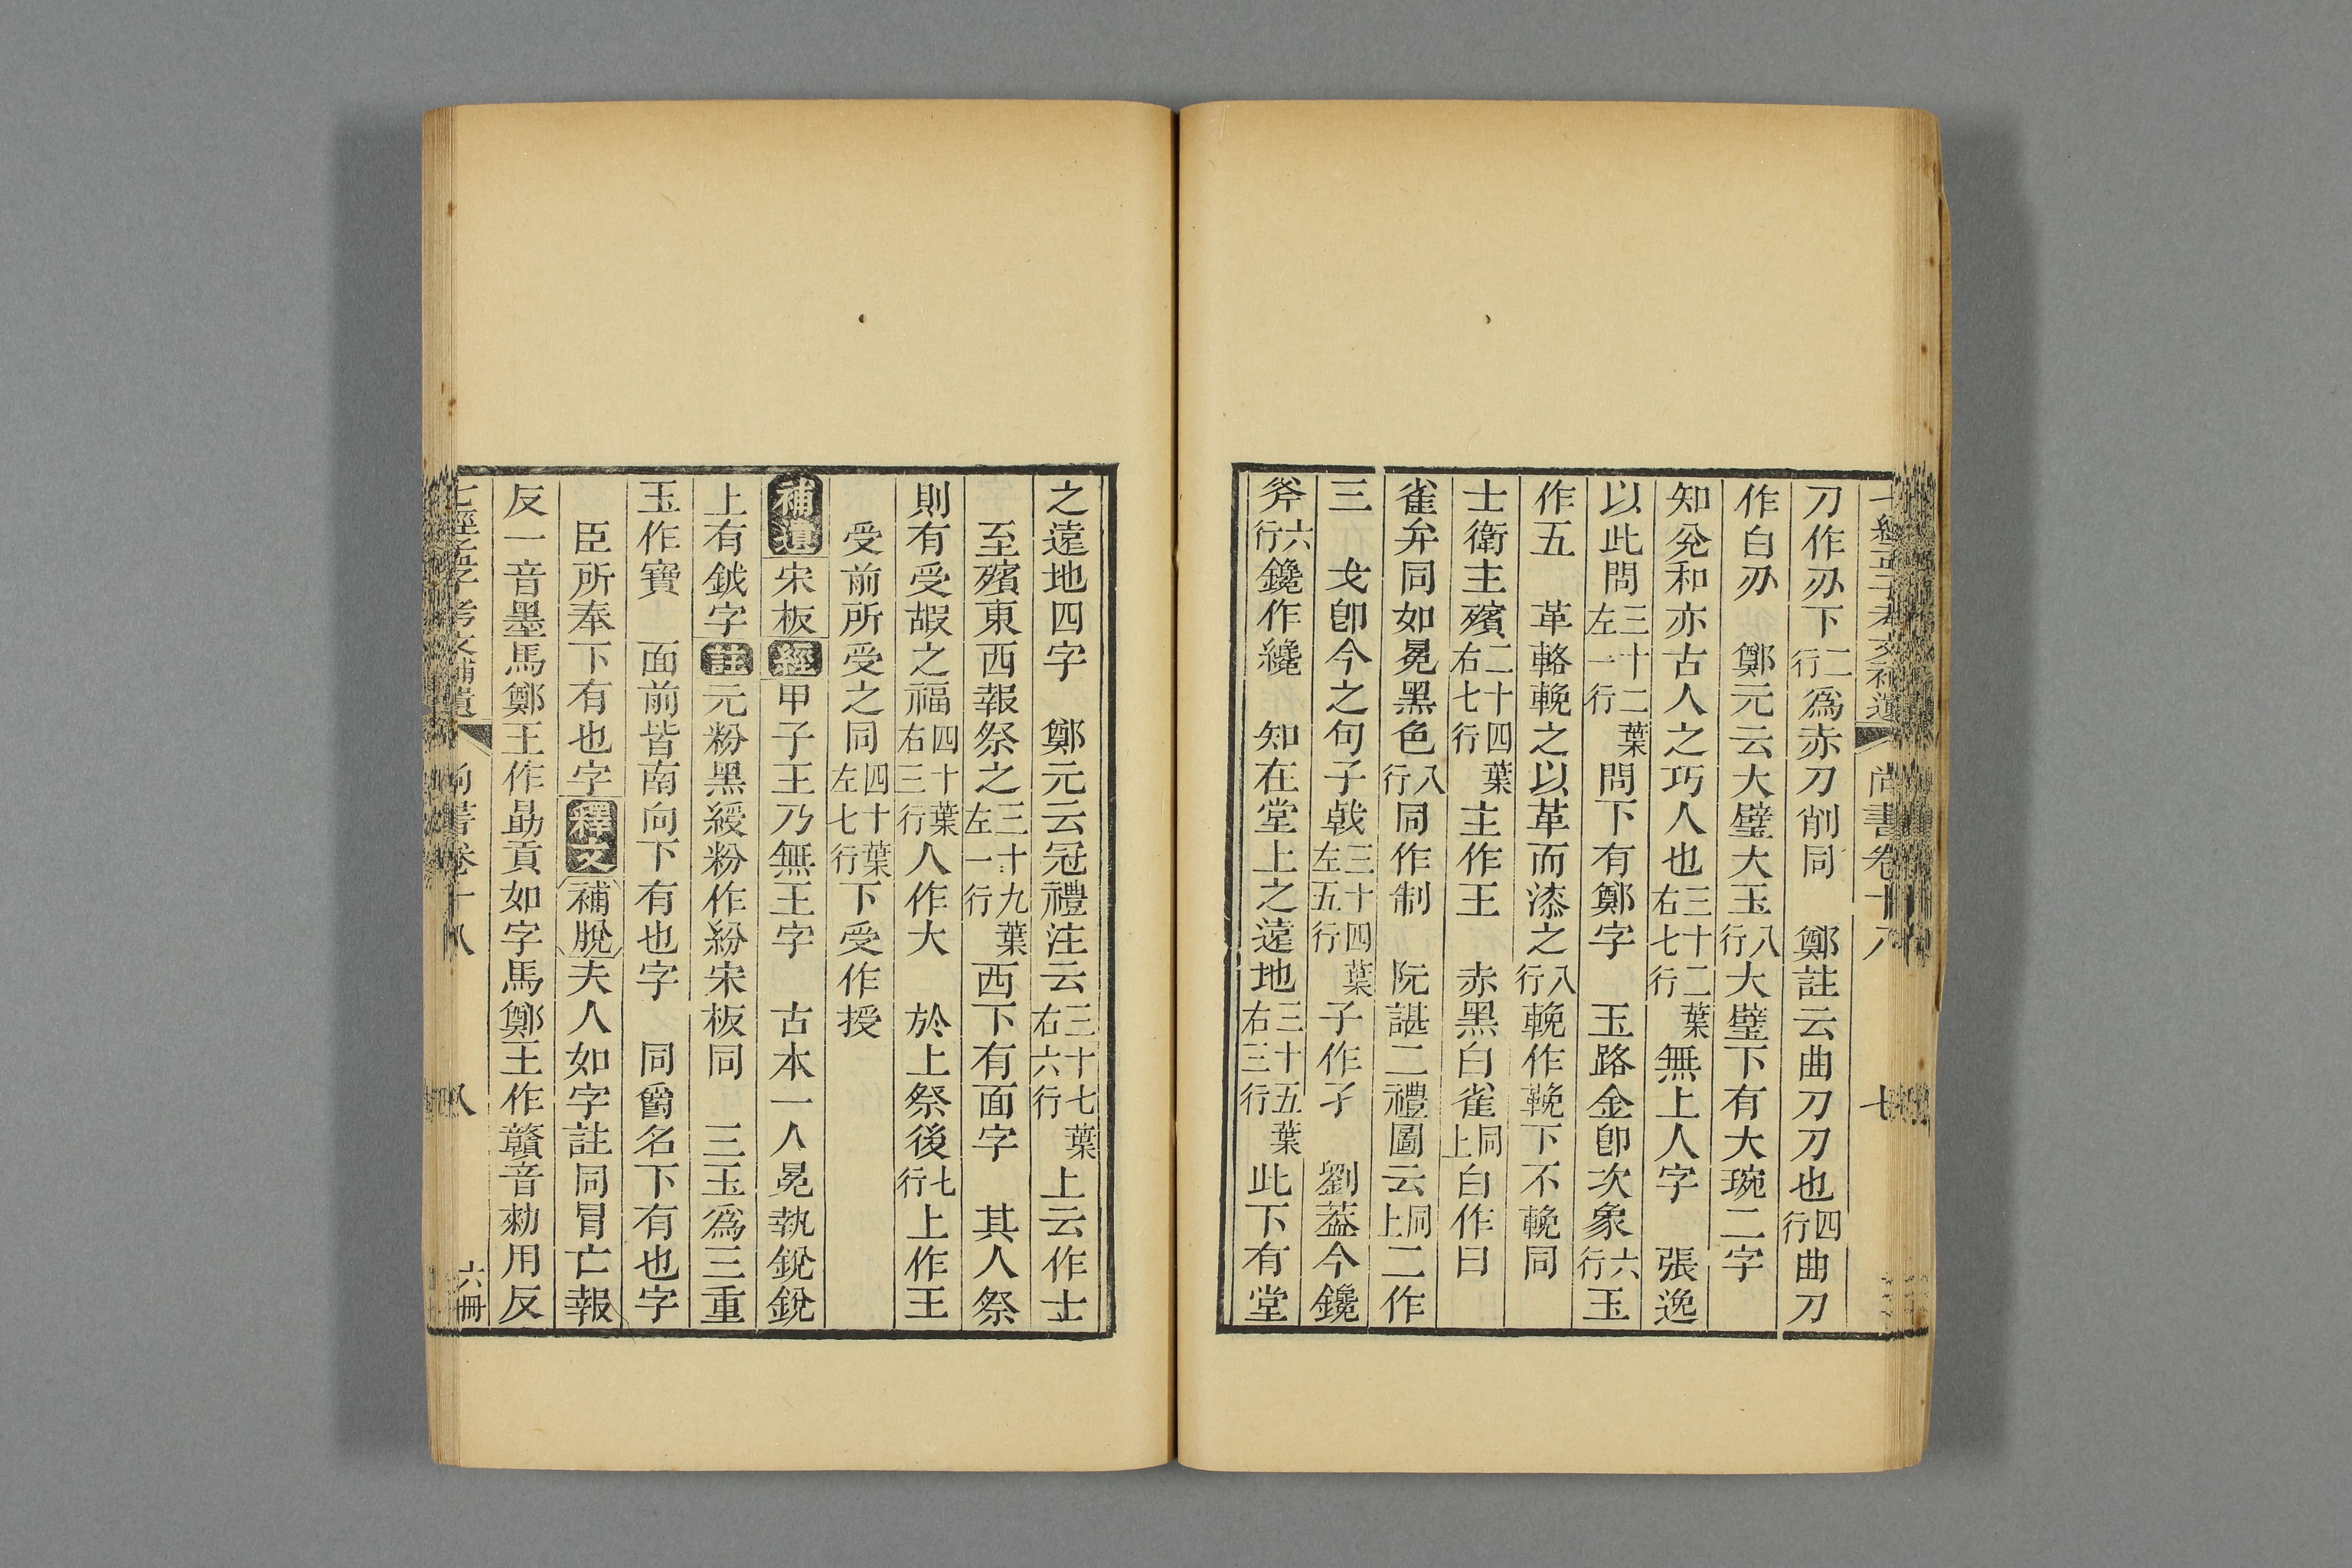 七經孟子考文補遺 尚書卷十八 七
刀作刅下二行爲赤刀削同 鄭註云曲刀刀也四行曲刀
作白刅 鄭元云大璧大玉八行大璧下有大琬二字
知兊和亦古人之巧人也三十二葉右七行無上人字 張逸
以此問三十二葉左一行問下有鄭字 玉路金卽次象六行玉
作五 革輅輓之以革而漆之八行輓作鞔下不輓同
士衛主殯二十四葉右七行主作王 赤黑白雀同上白作曰
雀弁同如冕黑色八行同作制 阮諶二禮圖云同上二作
三 戈卽今之句子戟三十四葉左五行子作孑 劉蓋今鑱
斧六行鑱作纔 知在堂上之遠地三十五葉右三行此下有堂
之遠地四字 鄭元云冠禮注云三十七葉右六行上云作士
至殯東西報祭之三十九葉左一行西下有面字 其人祭
則有受嘏之福四十葉右三行人作大 於上祭後七行上作王
受前所受之同四十葉左七行下受作授
補遺 宋板 經 甲子王乃無王字 古本一人冕執銳銳
上有鉞字 註 元粉黑綬粉作紛宋板同 三玉爲三重
玉作寶 面前皆南向下有也字 同爵名下有也字
臣所奉下有也字 釋文 補脫 夫人如字註同冒亡報
反一音墨馬鄭王作勗貢如字馬鄭王作贛音勑用反
七經孟子考文補遺 尚書卷十八 八 六冊